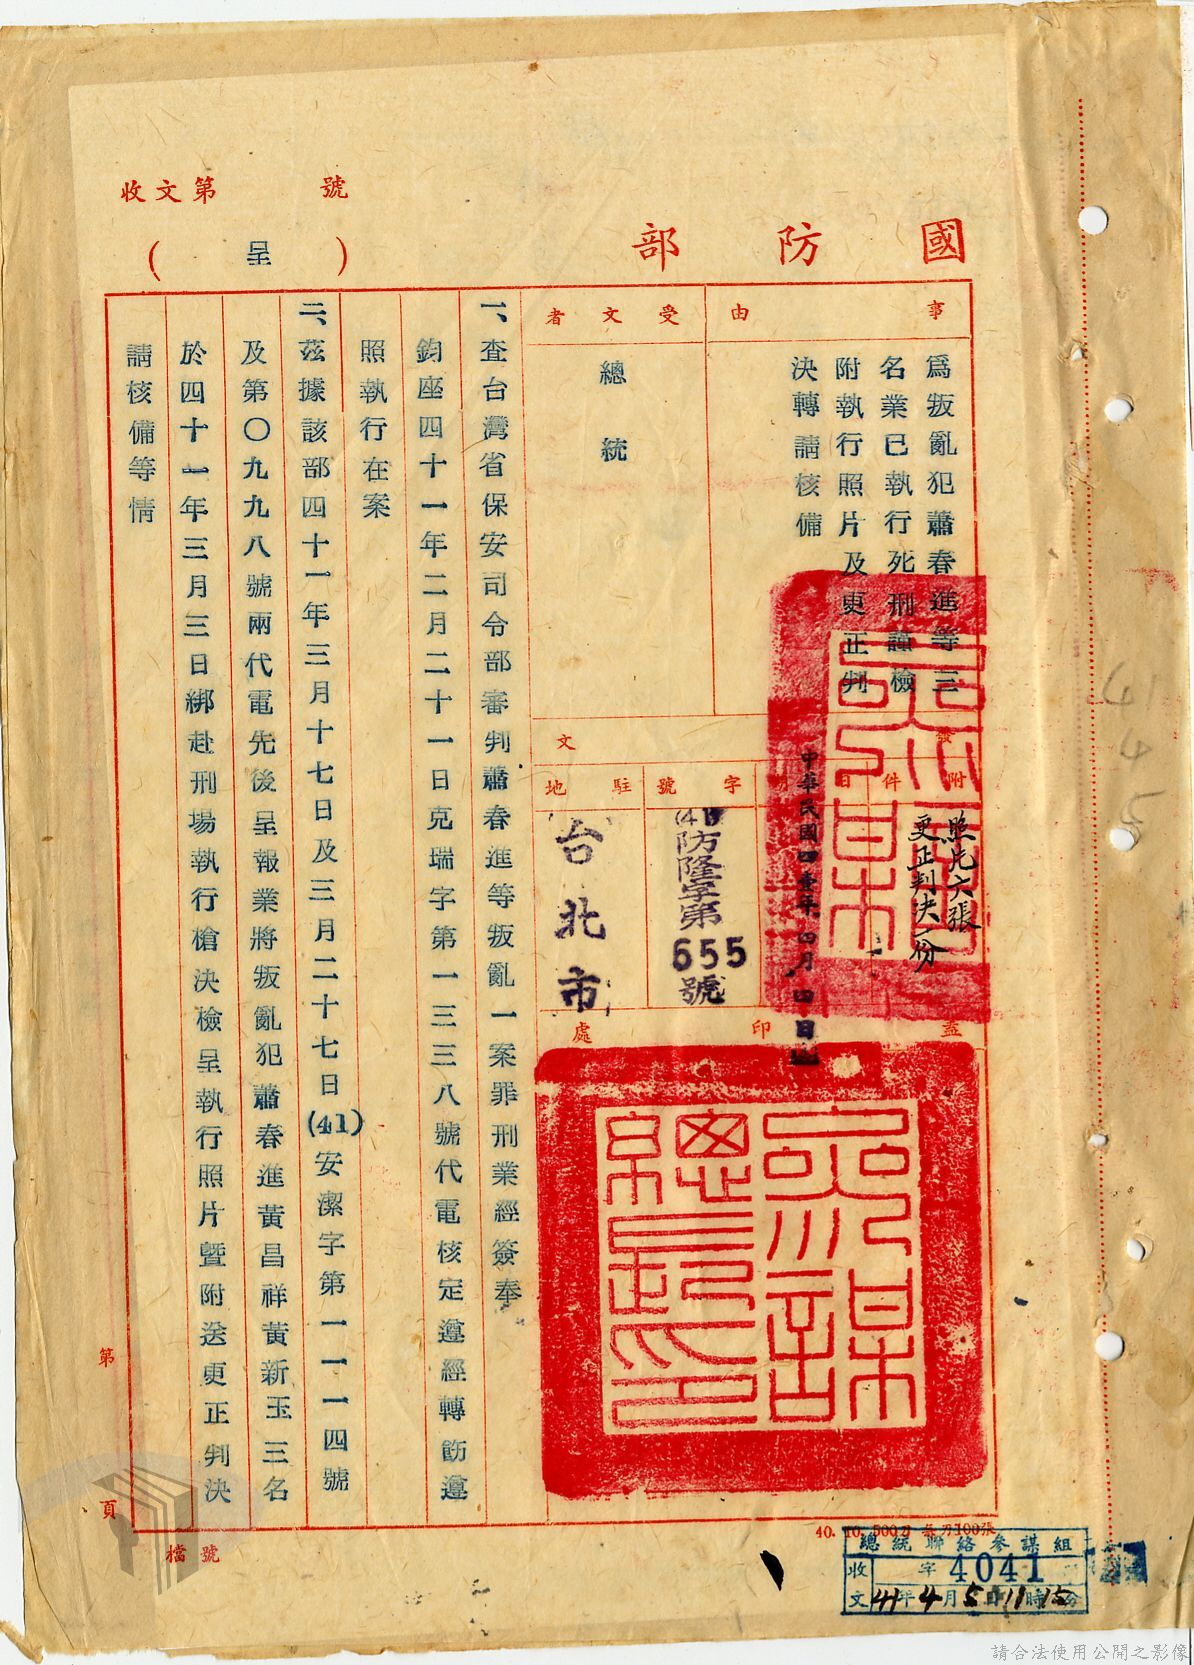 收文第　　號
國防部
（呈）
事由
為叛亂犯蕭春進等三
名業已執行死刑謹檢
附執行照片及更正判
決轉請核備
受文者
總統
附件
照片六張
更正判決一份
中華民國四壹年四月四日
字號
(41)防隆字第655號
駐地
台北市
文
蓋印處
參謀總長印
一、查台灣省保安司令部審判蕭春進等叛亂一案罪刑業經簽奉
鈞座四十一年二月二十一日克瑞字第一三三八號代電核定遵經轉飭遵
照執行在案
二、茲據該部四十一年三月十七日及三月二十七日(41)安潔字第一一一四號
及第〇九九八號兩代電先後呈報業將叛亂犯蕭春進黃昌祥黃新玉三名
於四十一年三月三日綁赴刑場執行槍決檢呈執行照片暨附送更正判決
請核備等情
第　頁
檔號
總統聯絡參謀組
收文
字4041
41年4月5日11時15分
645
請合法使用公開之影像